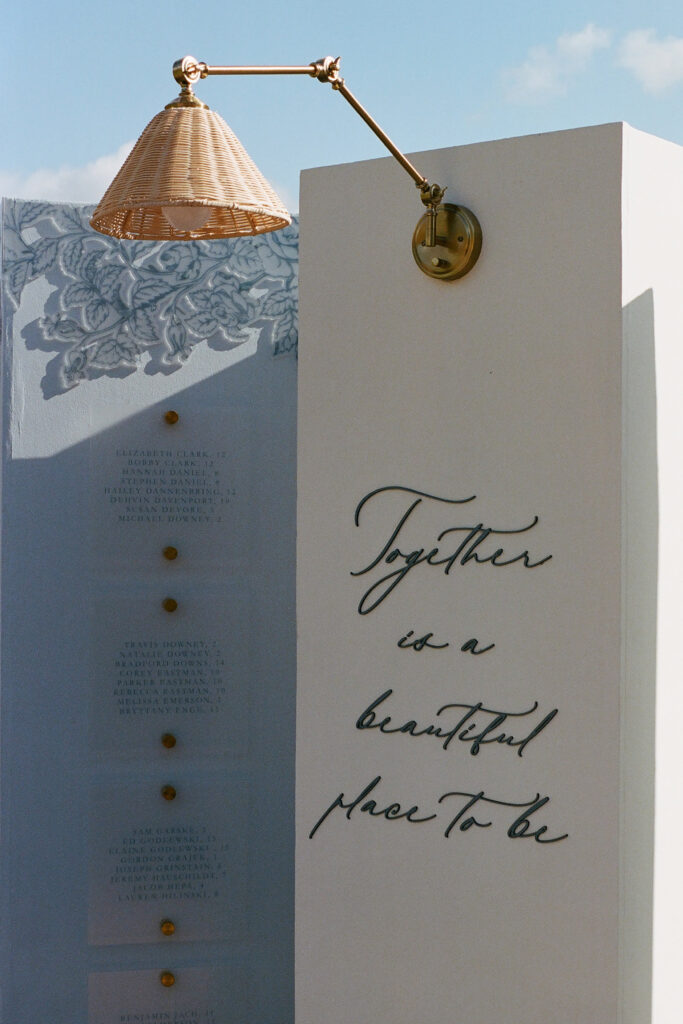 ELIZABETH CLARK, 12
BOBBY CLARK, 12
HANNAH DANIEL,
STEPHEN DANIEL,
HAILEY DANNENBRING, 12
DEHVIN DAVENPORT, 19
SUSAN DEVORE, 5
MICHAEL DOWNEY, 2
TRAVIS DOWNEY, 2
NATALIE DOWNEY, 2
BRADFORD DOWNS, 14
COREY EASTMAN, 10
PARKER EASTMAN, 10
REBECCA EASTMAN, 10
MELISSA EMERSON,
BRYTTANY
SAM
ED GODLEWSKI, 15
ELAINE GODLEWSKI, 15
GORDON GRAJEK,
JOSEPH GRINSTAIN,
JEREMY HAUSCHILDT,
JACOB HEPA,
LAUREN HILINSKI,
BENJAMIN JACO, 11
Together
is a
beautiful
place to be